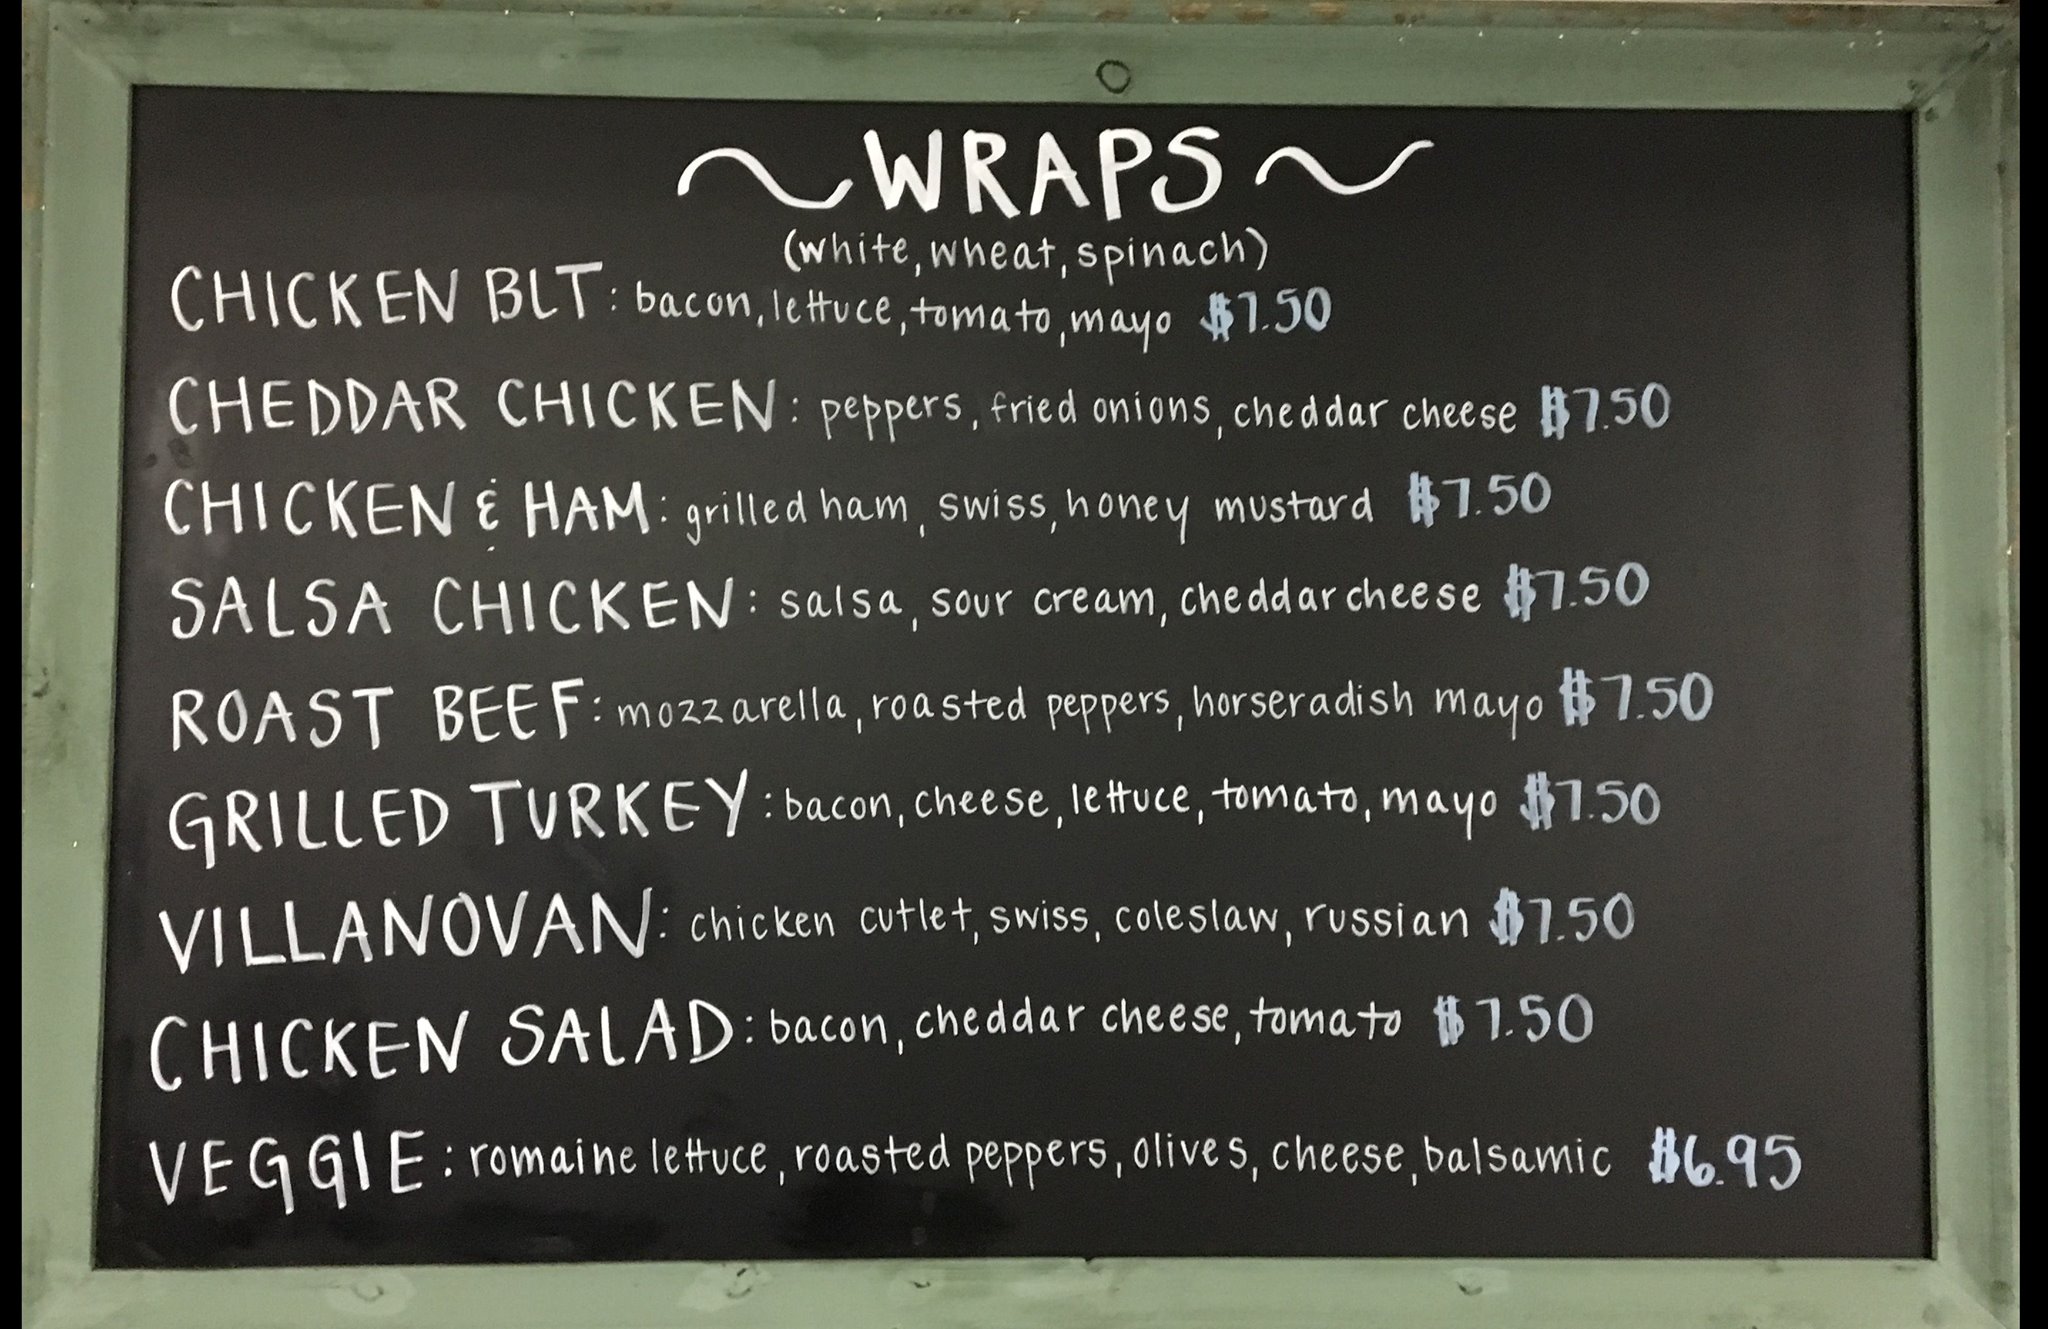 ~WRAPS~
(white, wheat, spinach)
CHICKEN BLT: bacon, lettuce, tomato, mayo $7.50
CHEDDAR CHICKEN: peppers, fried onions, cheddar cheese $7.50
CHICKEN & HAM: grilled ham, swiss, honey mustard $7.50
SALSA CHICKEN: salsa, sour cream, cheddar cheese $7.50
ROAST BEEF: mozzarella, roasted peppers, horseradish mayo $7.50
GRILLED TURKEY: bacon, cheese, lettuce, tomato, mayo $7.50
VILLANOVAN: chicken cutlet, swiss, coleslaw, russian $7.50
CHICKEN SALAD: bacon, cheddar cheese, tomato $7.50
VEGGIE: romaine lettuce, roasted peppers, olives, cheese, balsamic $6.95